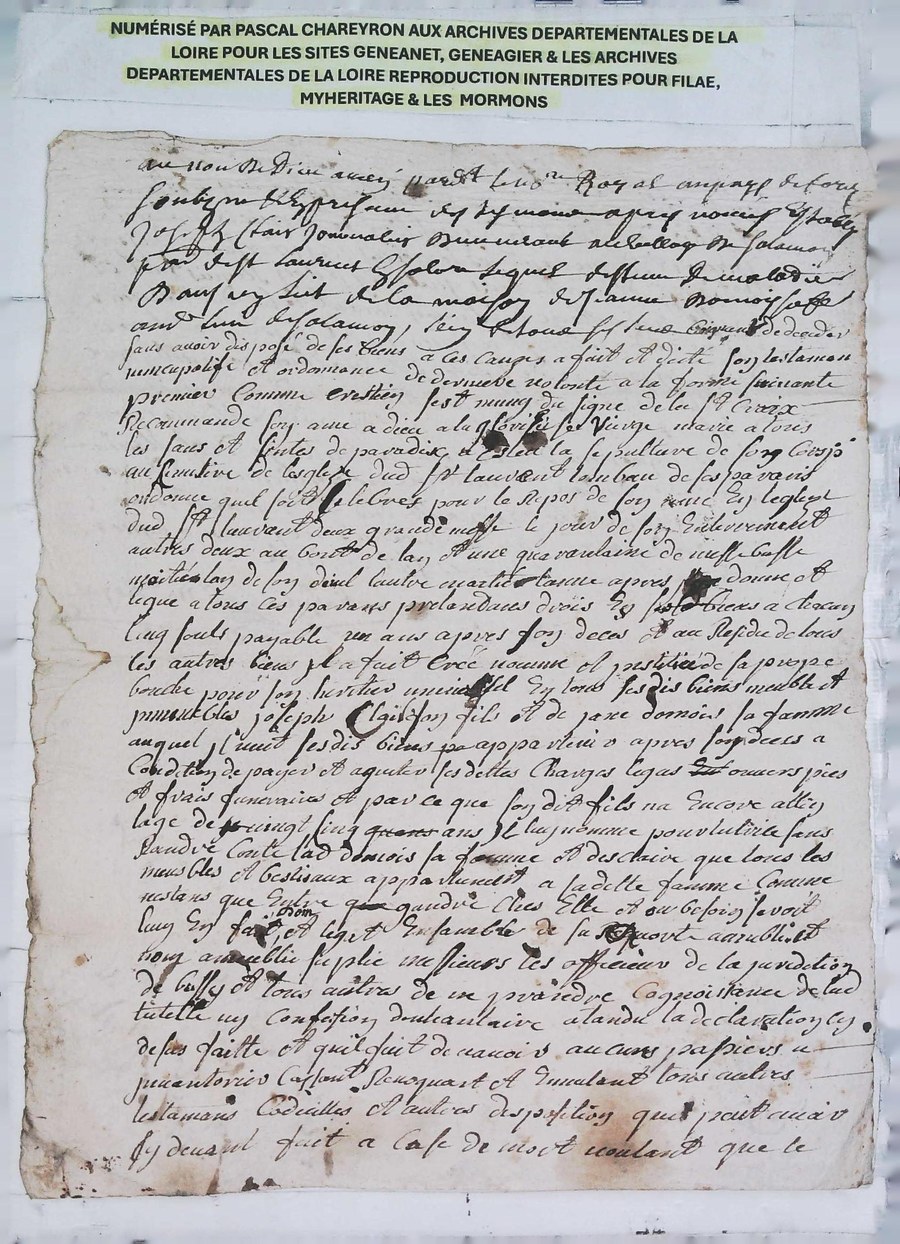 NUMÉRISÉ PAR PASCAL CHAREYRON AUX ARCHIVES DEPARTEMENTALES DE LA
LOIRE POUR LES SITES GENEANET, GENEAGIER & LES ARCHIVES
DEPARTEMENTALES DE LA LOIRE REPRODUCTION INTERDITES POUR FILAE,
MYHERITAGE & LES MORMONS
au nom De Dieu amen pardt le nore Royal
soubzne & en presence des tesmoins apres nommés Estably
Joseph Clair Journalier Demeurant au village De Solamon
psse de st laurent lequel de maladie
Dans un lict de la maison de Jeanne
aud lieu de solamon, de deceder
sans avoir disposé de ses biens a ces causes a fait et dicté son testamen
nuncupatif et ordonnance de derniere volonté a la forme suivante
premier Comme crestien sest muny du signe de la ste Croix
Recommandé son ame a dieu a la glorieuse vierge marie a tous
les sans et sintes de paradix, la sepulture de song Corsp
au simitire de lesglize dud st laurent tombau de ses parans
ordonne quil soit selebres pour le Repos de son ame En leglize
dud st laurant deux grande messe le jour de son Enterrement
autres deux au bout de lan et une quarantaine de messe basse
moitié lan de son deuil lautre moitié lanne apres donne et
legue a tous ces parans pretandans drois En ses biens a chacun
cinq souls payable un ans apres son deces et au Residu de tous
les autres biens jl a fait Créé nommé et jnstitué de sa propre
bouche pour son heritier universel En tous ses dis biens meuble et
jmmeubles joseph Clair son fils et de jane domois sa famme
auquel jl veut ses dis biens appartenir apres son deces a
Condition de payer et aquiter ses dettes Charges legas euvers pies
et frais funeraires et par ce que son dit fils na Encore attin
lage de vingt sinq ans jl luy nomme pour tutrice sans
Randre Conte lad domois sa famme et desclaire que tous les
meubles et bestiaux appartienent a sa dette famme Comme
nestans que Entre gandre Chés Elle et au besoin seroit
luy En fait don, et leget Ensamble de sa
supplie messieurs les officiers de la juridition
de bussy et tous autres de ne prandre Cognoissance de lad
tutelle ny Confetion dinvantaire atandu la declaration cy
desus faitte et quil fait de navoir aucuns papiers
jnvantorier Cassant Revoquant et Annulant tous autres
testamans Codicilles et autres desposition que peut avoir
Cy devant fait a Cause de mort voulant que le